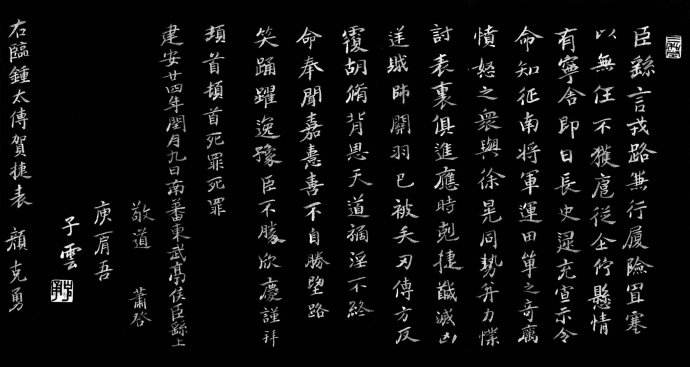 臣繇言戎路兼行履險冒寒
以無任不獲扈從企佇懸情
有寧舍即日長史逯充宣示令
命知征南將軍運田單之奇厲
憤怒之眾與徐晃同勢并力撲
討表裏俱進應時剋捷馘滅凶
逆賊帥關羽已被矢刃傅方反
覆胡脩背恩天道禍淫不終
命奉聞嘉憙喜不自勝望路
笑踊躍逸豫臣不勝欣慶謹拜
頓首頓首死罪死罪
建安廿四年閏月九日南蕃東武亭侯臣繇上
敬道 蕭啓
庾肩吾
子雲
右臨鍾太傅賀捷表 顏克勇